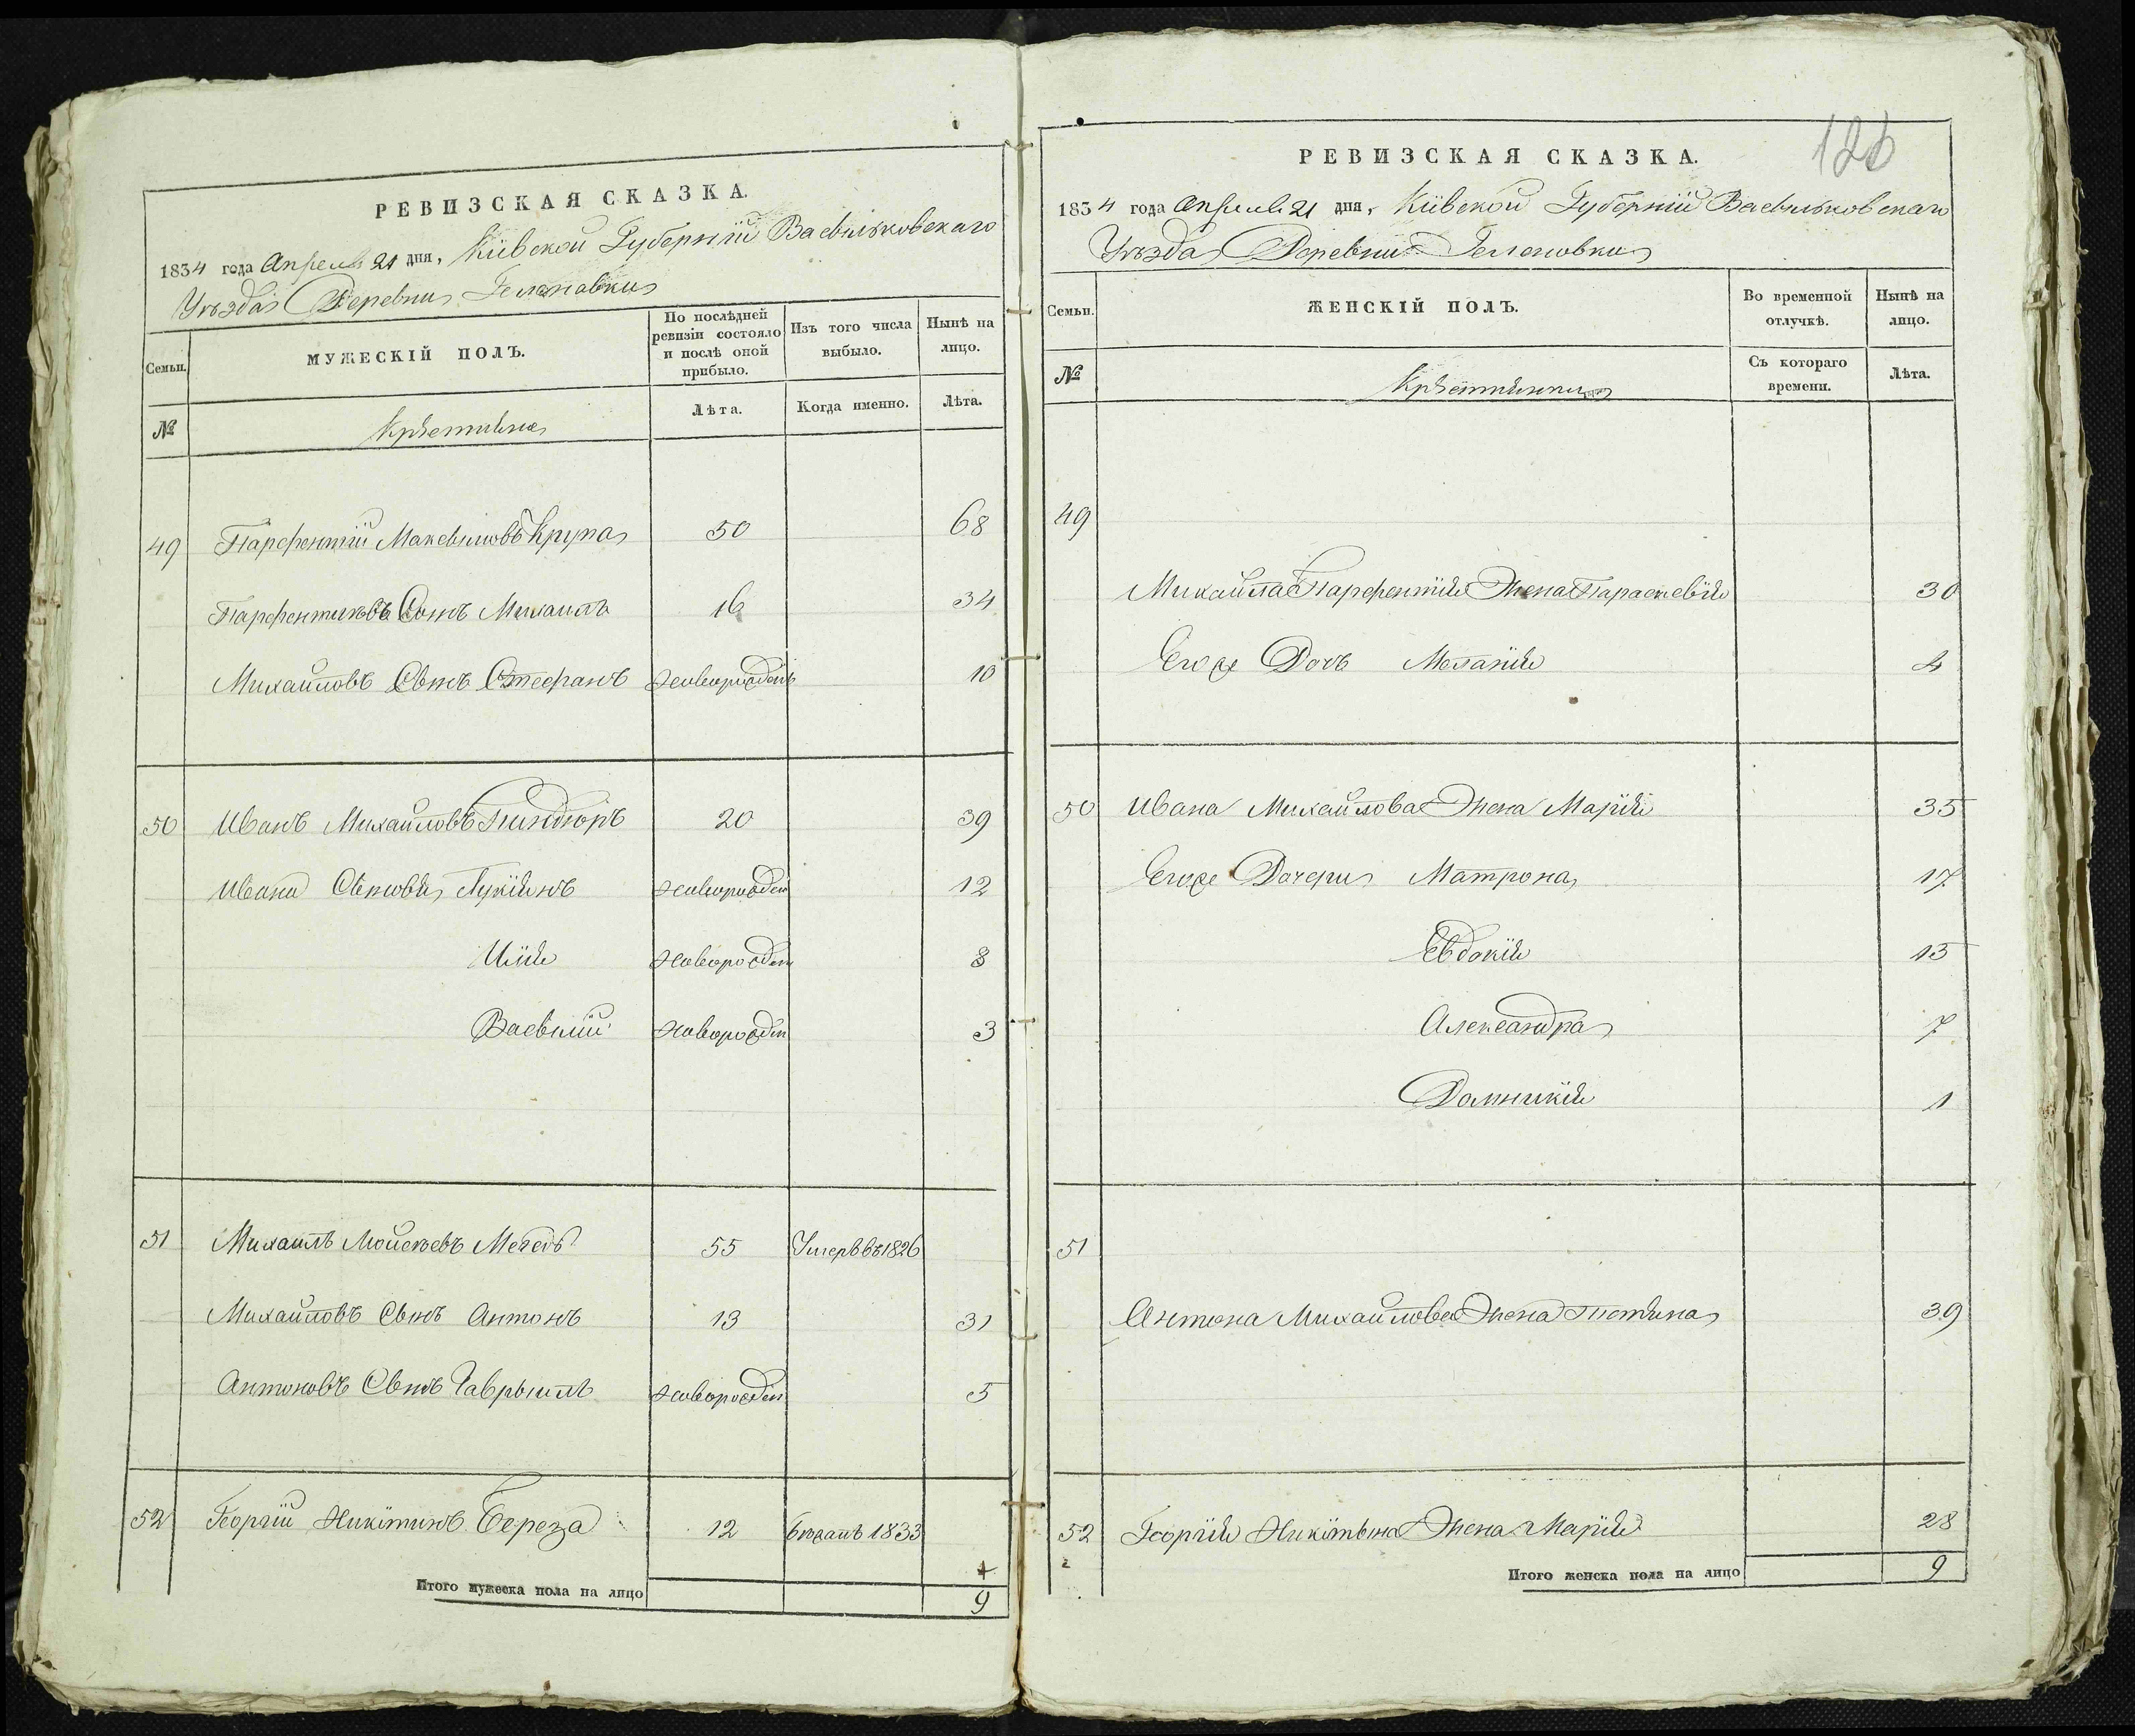 РЕВИЗСКАЯ СКАЗКА.
1834 года Апреля 21 дня, Кіевской Губерніи Васильковскаго
Уезда Деревни Гелоновки
Семьи.
МУЖЕСКІЙ ПОЛЪ.
По послѣдней ревизіи состояло и послѣ оной прибыло.
Изъ того числа выбыло.
Нынѣ на лицо.
№
Крестьяне
Лѣта.
Когда именно.
Лѣта.
49 Парфентій Максымовъ Крупа 50 68
Парфентіевъ Сынъ Михаилъ 16 34
Михайловъ Сынъ Стефанъ новорожденъ 10
50 Иванъ Михайловъ 20 39
Ивана Сыновья Лукіянъ новорожден 12
Илія новорожден 8
Васылій новорожден 3
51 Михаилъ Мойсеевъ 55 Умеръ въ 1826
Михайловъ Сынъ Антонъ 13 31
Антоновъ Сынъ Гаврыилъ новорожден 5
52 Георгій Никитинъ Береза 12 бежалъ 1833
Итого мужеска пола на лицо 9
126
РЕВИЗСКАЯ СКАЗКА.
1834 года Апреля 21 дня, Кіевской Губерніи Васильковскаго
Уезда Деревни Гелоновки
Семьи.
ЖЕНСКІЙ ПОЛЪ.
Во временной отлучкѣ.
Нынѣ на лицо.
№
Крестьянки
Съ котораго времени.
Лѣта.
49
Михайла Парфентія Жена Параскевія 30
Егоже Дочь Меланія 4
50 Ивана Михайлова Жена Марія 35
Егоже Дочери Матрона 17
Евдокія 13
Александра 7
Домникія 1
51
Антона Михайлова Жена Тетяна 39
52 Георгія Никитына Жена Марія 28
Итого женска пола на лицо 9